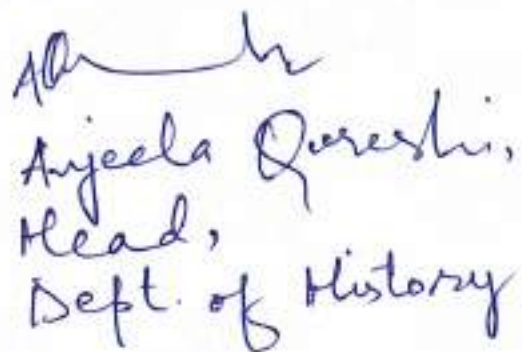 Anjeela Qureshi,
Head,
Dept. of History